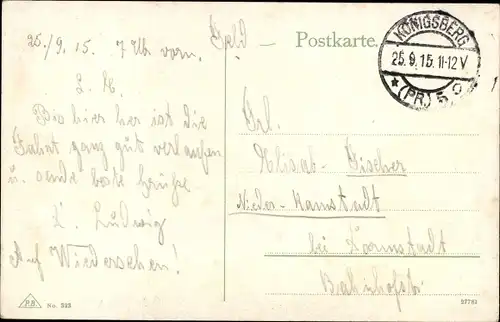 25./9. 15. 7 Uhr vorm.
Feld
Postkarte.
KÖNIGSBERG
25.9.15.11-12V
*(PR.)5
L. E.
Bis hier her ist die
Fahrt ganz gut verlaufen
u. sende beste Grüße
L. Ludwig
Auf Wiedersehen!
Frl.
Elisab. Fischer
Nieder-Ramstadt
bei Darmstadt
Bahnhofstr.
No. 323
37781